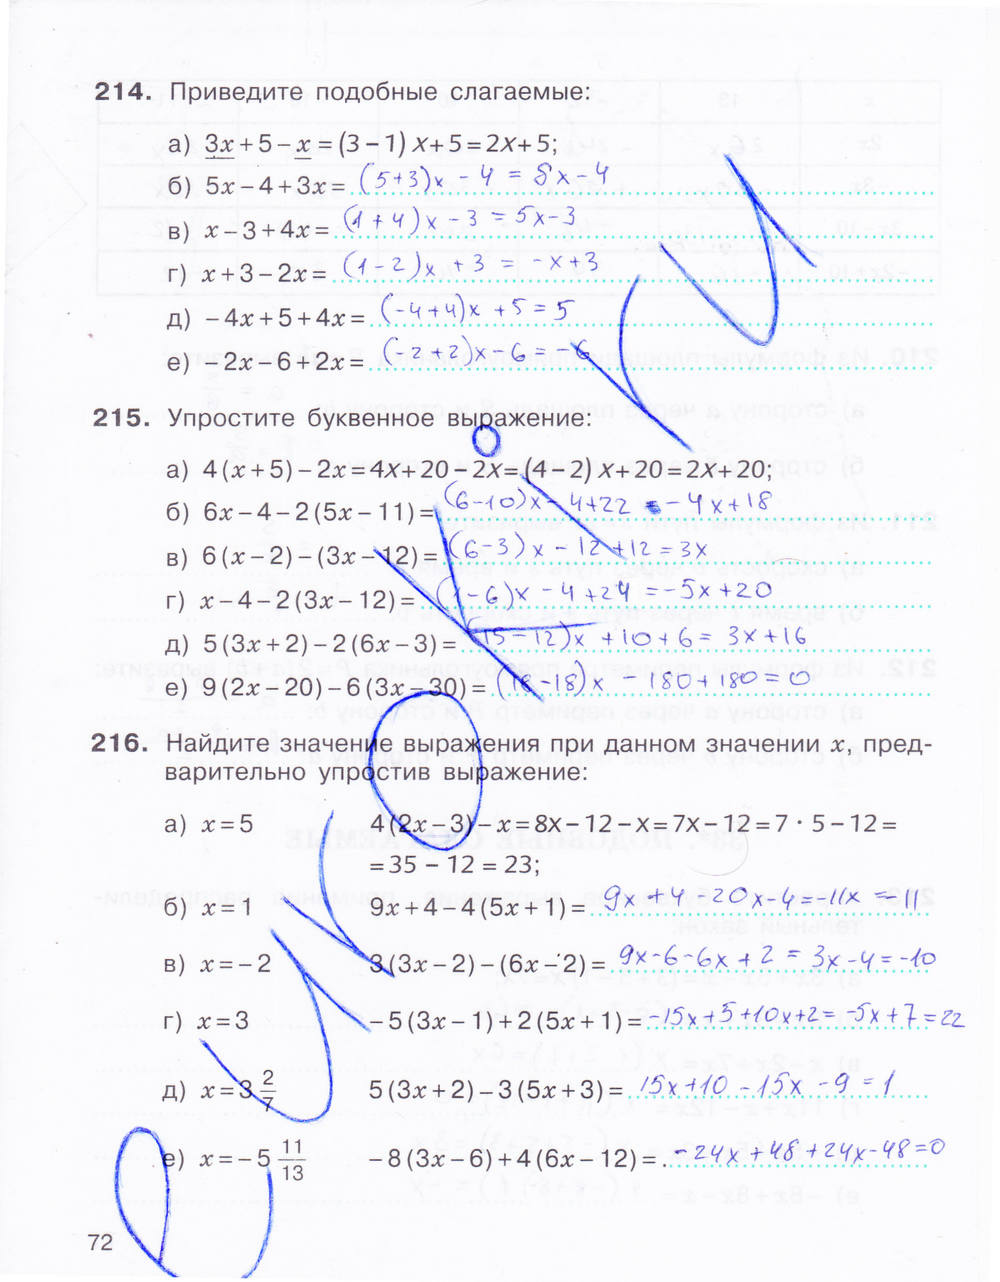 214. Приведите подобные слагаемые:
а) 3x + 5 – x = (3 – 1) x + 5 = 2x + 5;
б) 5x – 4 + 3x = (5+3)x - 4 = 8x - 4
в) x – 3 + 4x = (1 + 4)x - 3 = 5x - 3
г) x + 3 – 2x = (1 - 2)x + 3 = -x + 3
д) – 4x + 5 + 4x = (-4+4)x + 5 = 5
е) – 2x – 6 + 2x = (-2+2)x - 6 = -6
215. Упростите буквенное выражение:
а) 4 (x + 5) – 2x = 4x + 20 – 2x = (4 – 2) x + 20 = 2x + 20;
б) 6x – 4 – 2 (5x – 11) = (6-10)x - 4+22 = -4x+18
в) 6 (x – 2) – (3x – 12) = (6-3)x - 12 +12 = 3x
г) x – 4 – 2 (3x – 12) = (1-6)x - 4 + 24 = -5x+20
д) 5 (3x + 2) – 2 (6x – 3) = (15-12)x +10+6 = 3x+16
е) 9 (2x – 20) – 6 (3x – 30) = (18-18)x - 180+180 = 0
216. Найдите значение выражения при данном значении x, пред-
варительно упростив выражение:
а) x = 5 4 (2x – 3) – x = 8x – 12 – x = 7x – 12 = 7 · 5 – 12 =
= 35 – 12 = 23;
б) x = 1 9x + 4 – 4 (5x + 1) = 9x + 4 - 20x - 4 = -11x = -11
в) x = – 2 3 (3x – 2) – (6x – 2) = 9x - 6 - 6x + 2 = 3x - 4 = -10
г) x = 3 – 5 (3x – 1) + 2 (5x + 1) = -15x+5+10x+2 = -5x+7 = 22
д) x = 3 2/7 5 (3x + 2) – 3 (5x + 3) = 15x+10 - 15x - 9 = 1
е) x = – 5 11/13 – 8 (3x – 6) + 4 (6x – 12) = -24x+48+24x-48=0
72